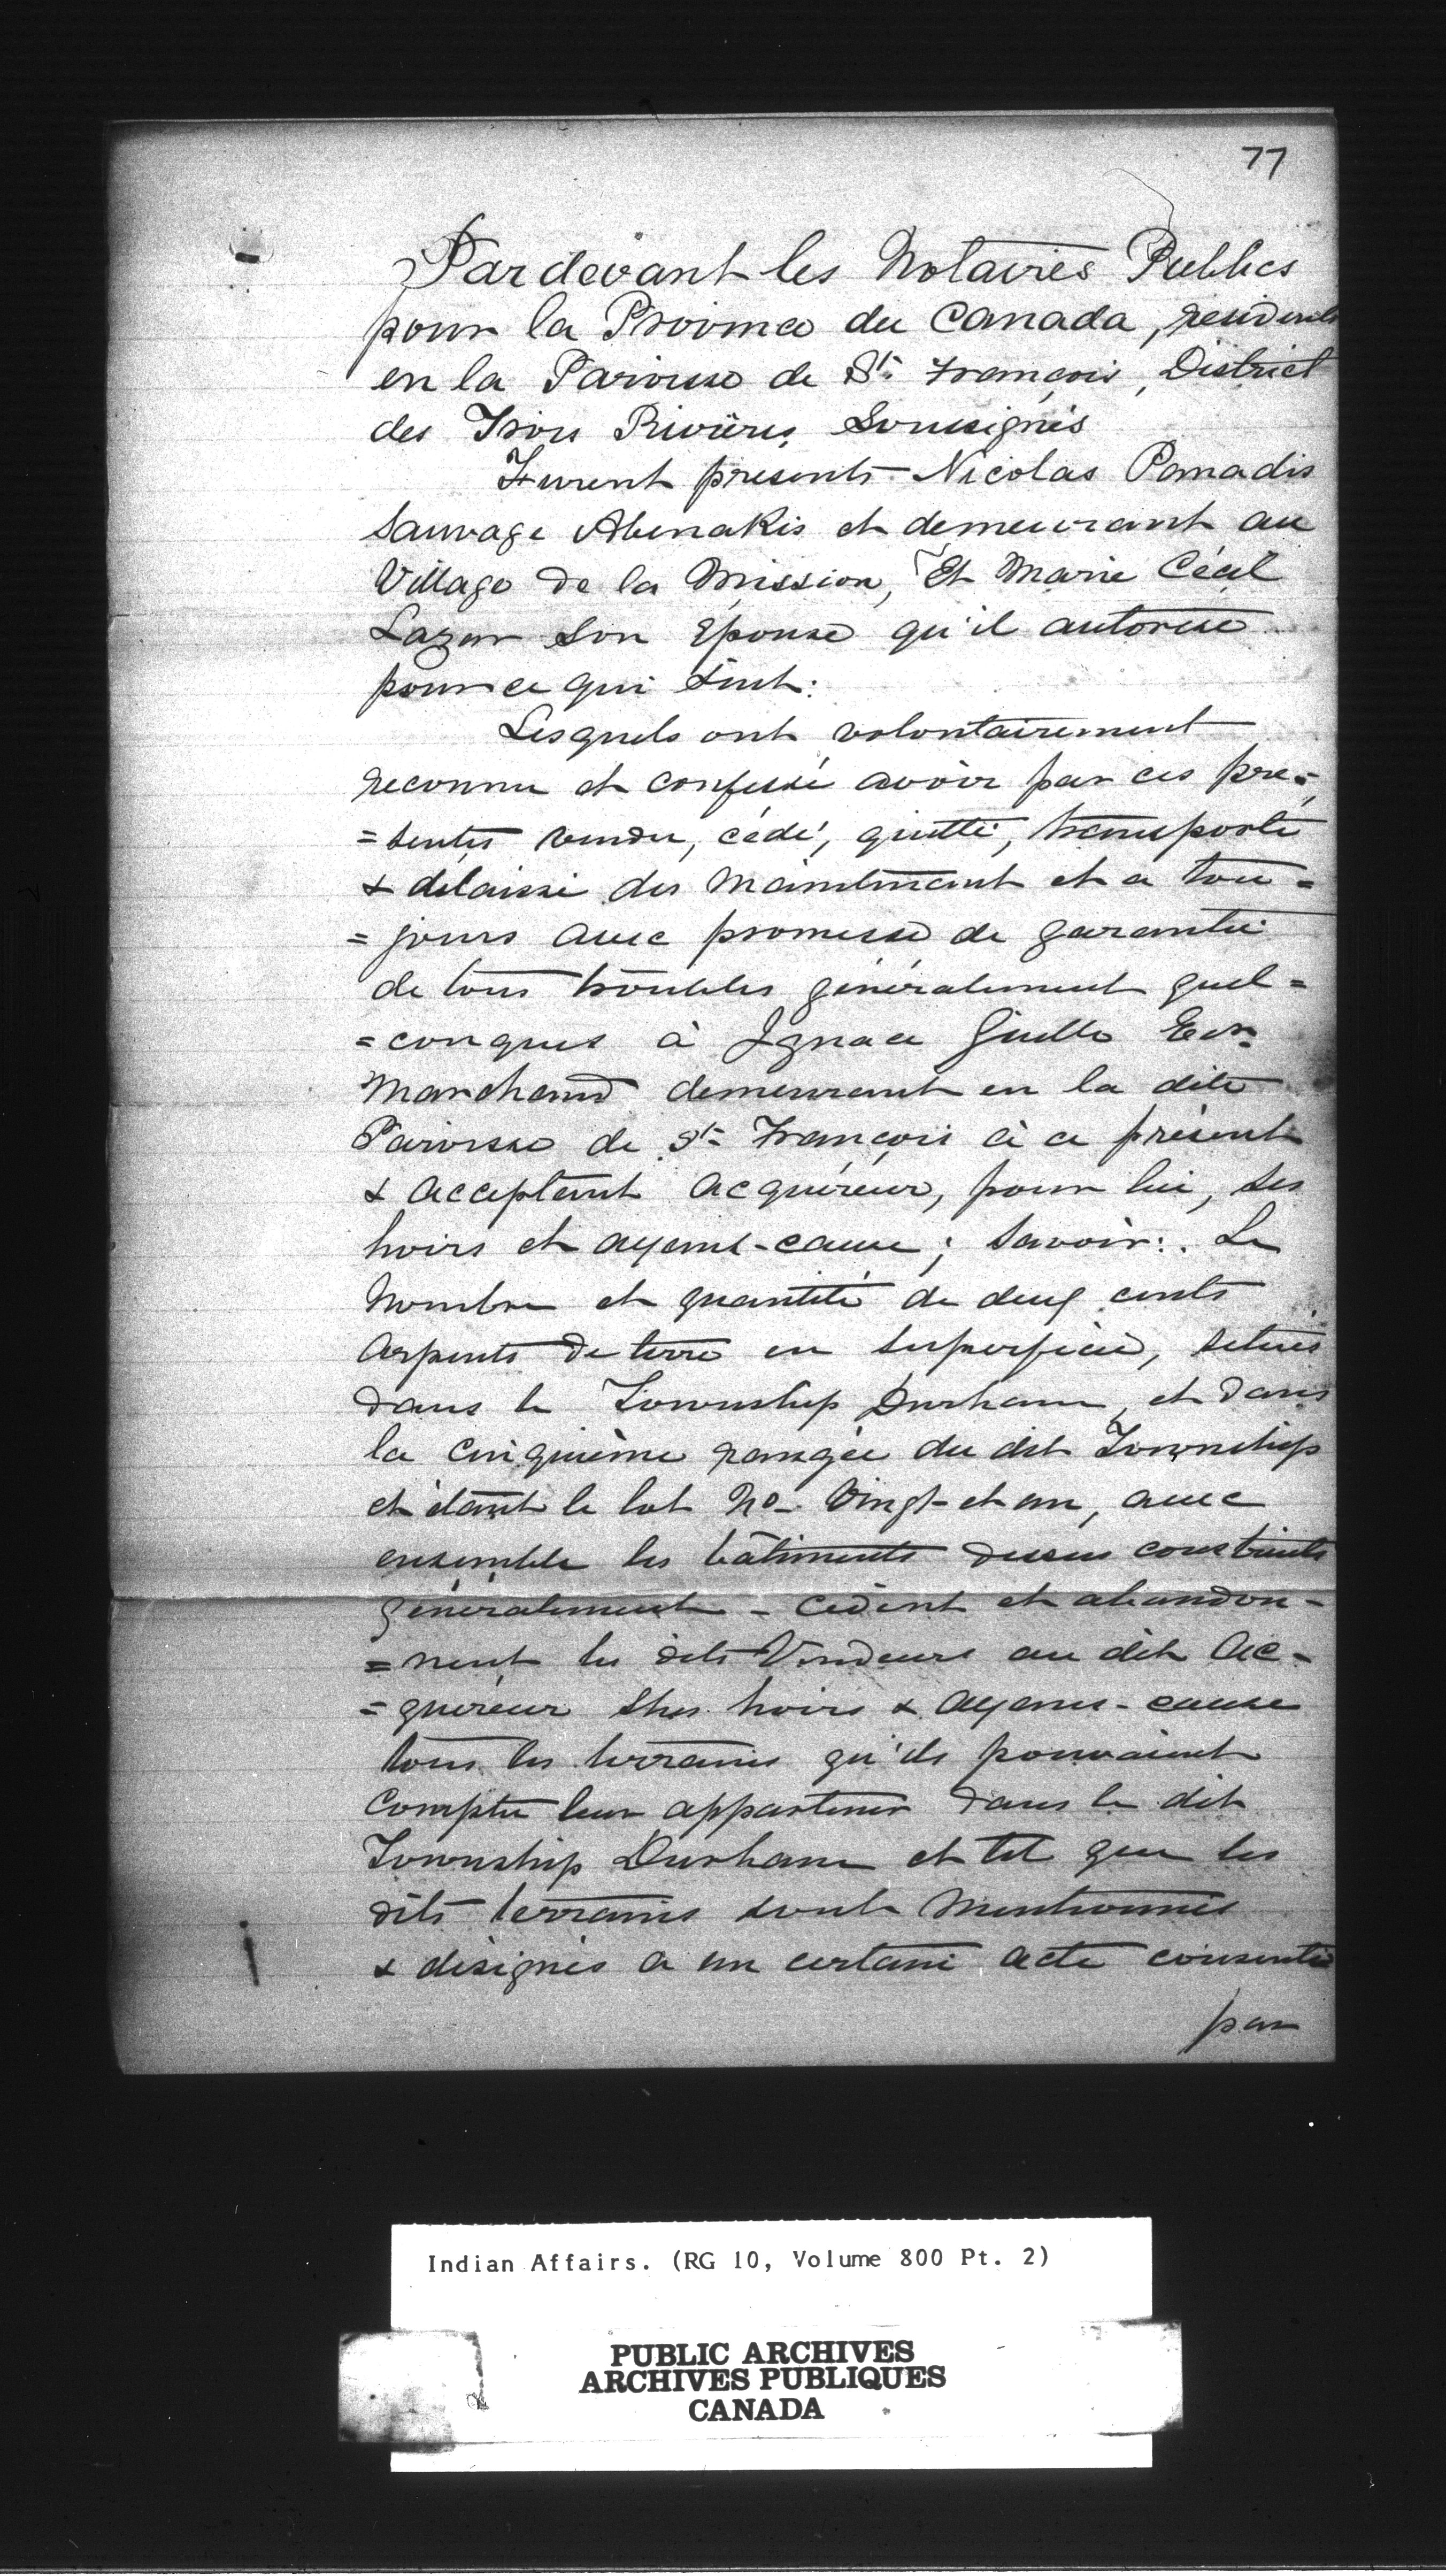 77
Pardevant les Notaires Publics
pour la Province du Canada, résidents
en la Paroisse de St. François, District
des Trois Rivières, Soussignés
Furent présents Nicolas Panadis
Sauvage Abenakis et demeurant au
Village de la Mission, Et Marie Cécil
Lazar son Epouse qu'il autorise
pour ce qui suit:
Lesquels ont volontairement
reconnu et confessé avoir par ces pré-
=sentes vendu, cédé, quitté, transporté
& délaissé des maintenant et a tou=
=jours avec promesse de garantie
de tous troubles généralement quel=
=conques à Ignace Guille Ecr.
Marchand demeurant en la dite
Paroisse de St= François à ce présent
& acceptant acquéreur, pour lui, ses
hoirs et ayans-cause; Savoir: Le
Nombre et quantité de deux cents
arpents de terre en superficie, situés
dans le Township Durham, et dans
la cinquième rangée du dit Township
et étant le lot No. Vingt-et un, avec
ensemble les bâtiments dessus construits
généralement - Cèdent et abandon-
=nent les dits Vendeurs au dit Ac-
=quéreur Shes hoirs & ayans-cause
tous les terrains qu'ils pouvaient
compter leur appartenir dans le dit
Township Durham et tel que les
dits terrains sont mentionnés
& désignés a un certain acte consenti
par
Indian Affairs. (RG 10, Volume 800 Pt. 2)
PUBLIC ARCHIVES
ARCHIVES PUBLIQUES
CANADA